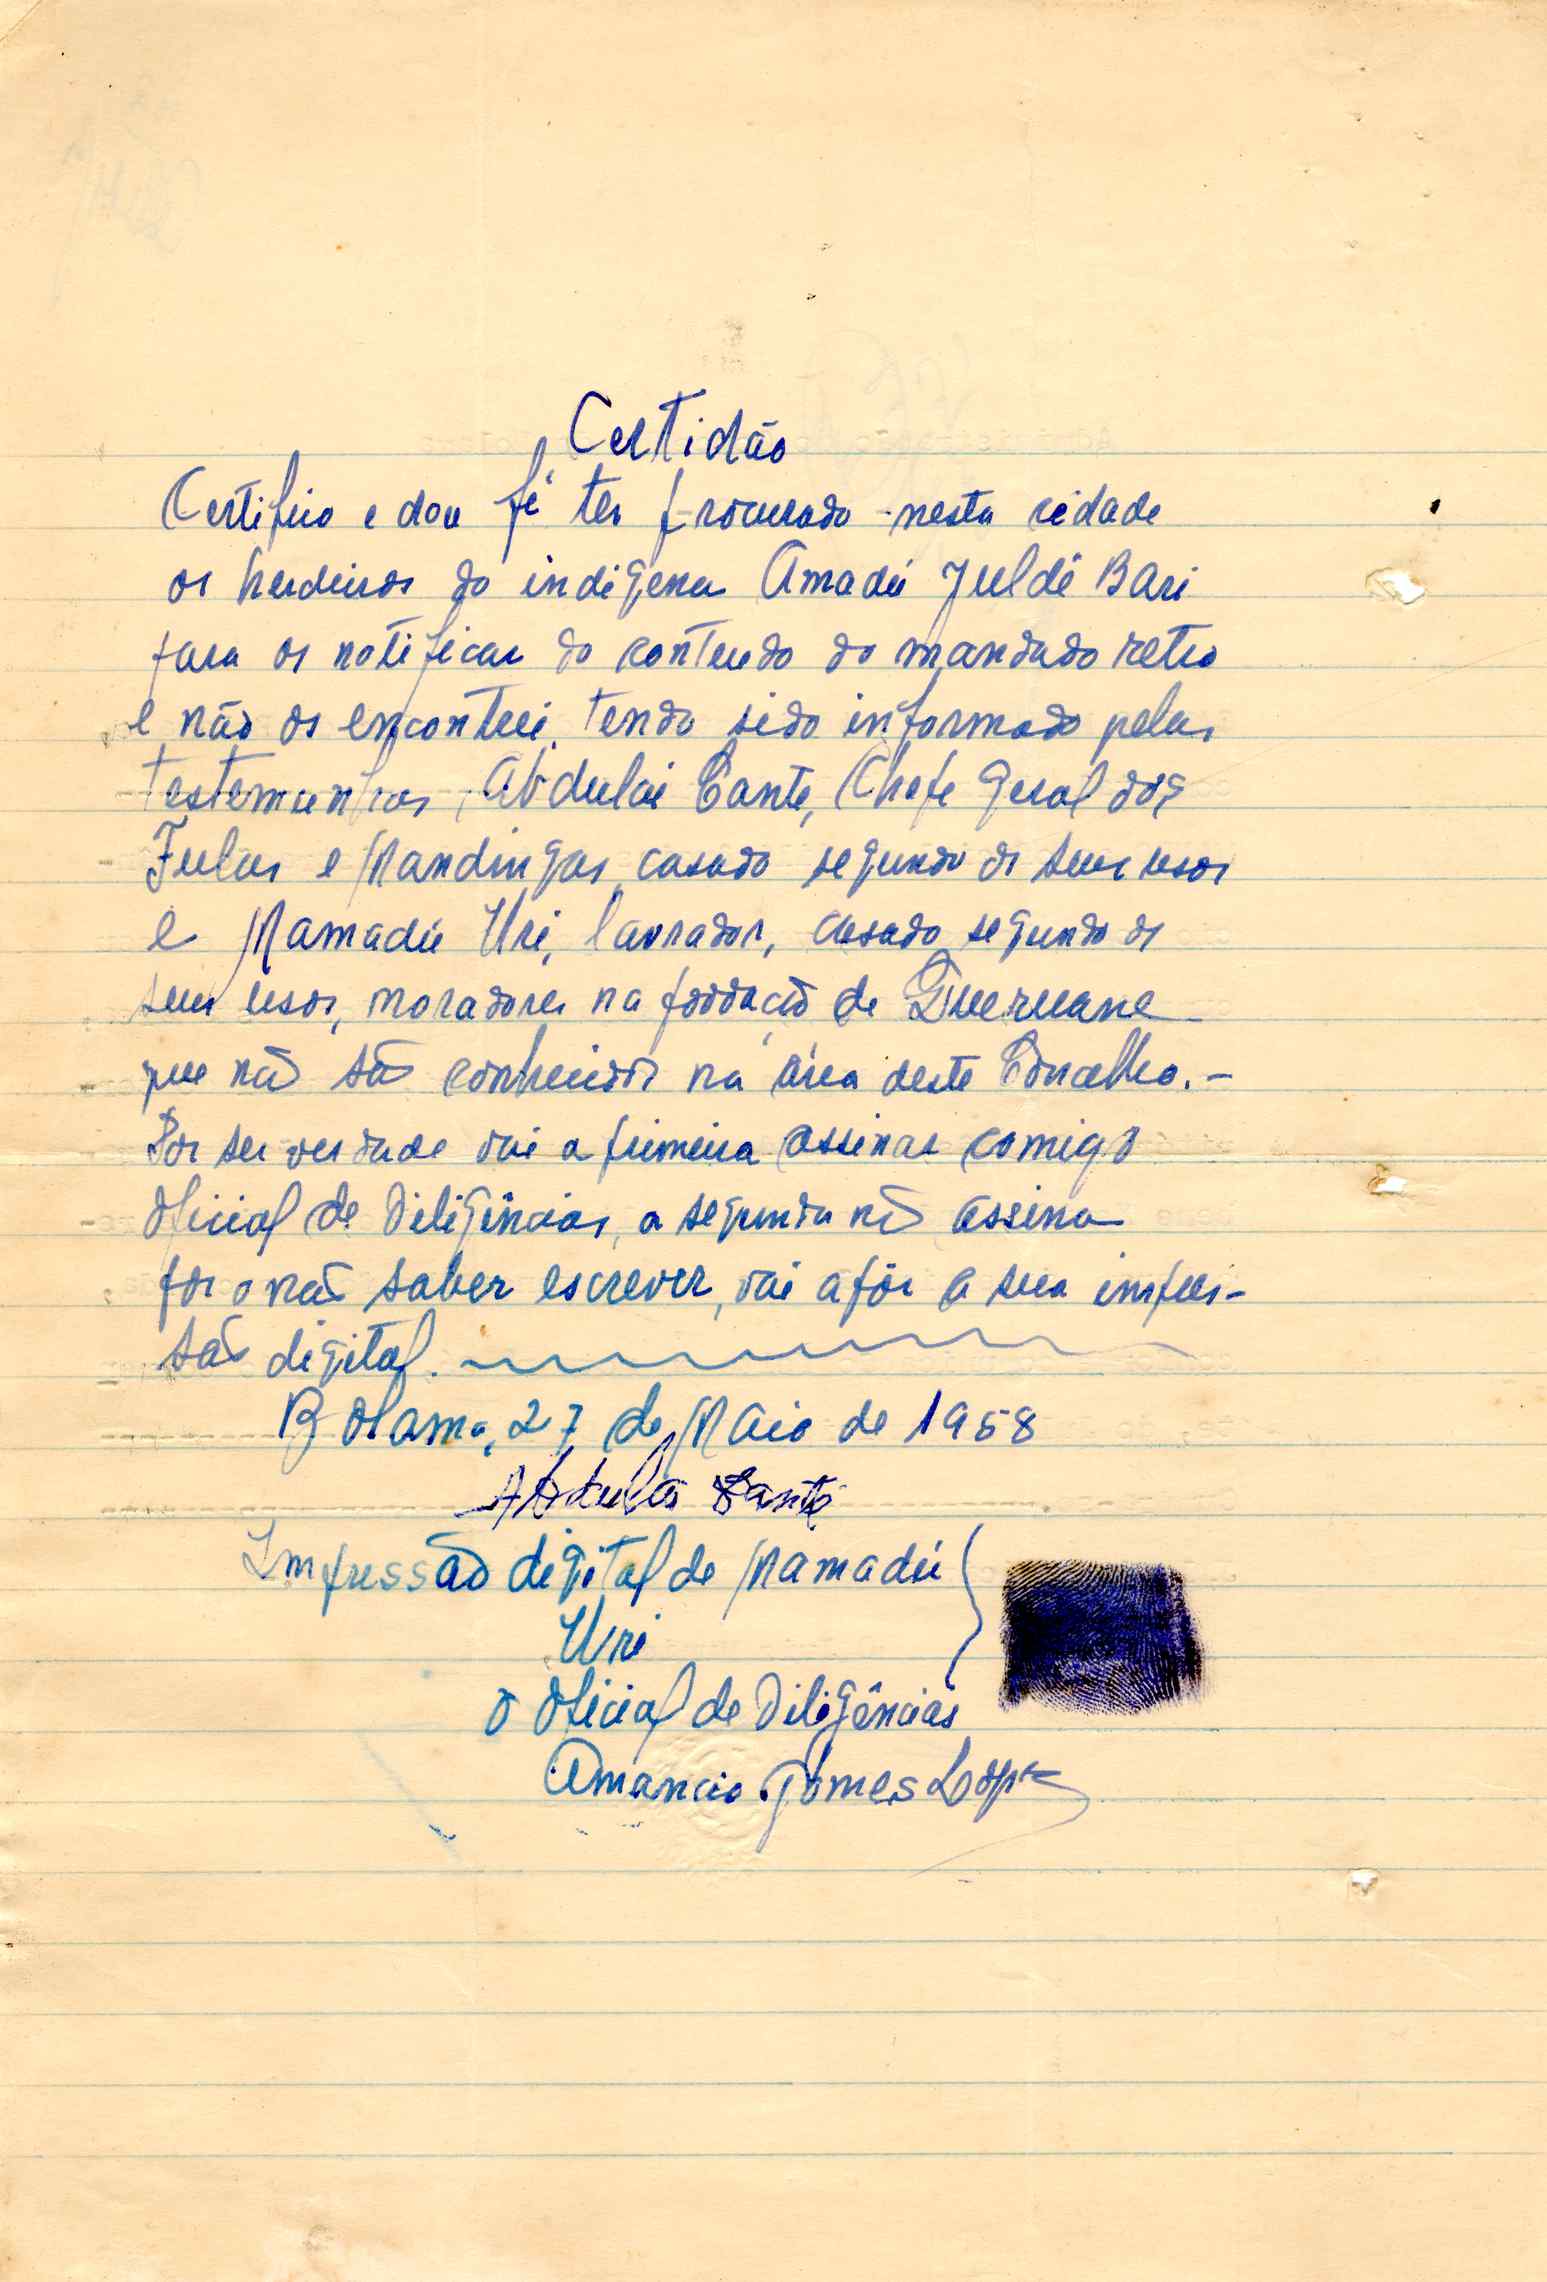 Certidão
Certifico e dou fé ter procurado nesta cidade
os herdeiros do indigena Amadú Juldé Bari
para os notificar do conteudo do mandado retro
e não os encontrei, tendo sido informado pelas
testemunhas, Abdulai Cante, Chefe Geral dos
Fulas e Mandingas, casado segundo os seus usos
e Mamadú Uri, lavrador, casado segundo os
seus usos, moradores na povoação de
que não são conhecidos na área deste Concelho. -
Por ser verdade vai a primeira assinar comigo
Oficial de Diligências, a segunda não assina
por o não saber escrever, vai apôr a sua impres-
são digital.
Bolama, 27 de Maio de 1958
Abdulai Cante
Impressão digital de Mamadú
Uri
O Oficial de Diligências
Amancio Gomes Lopes